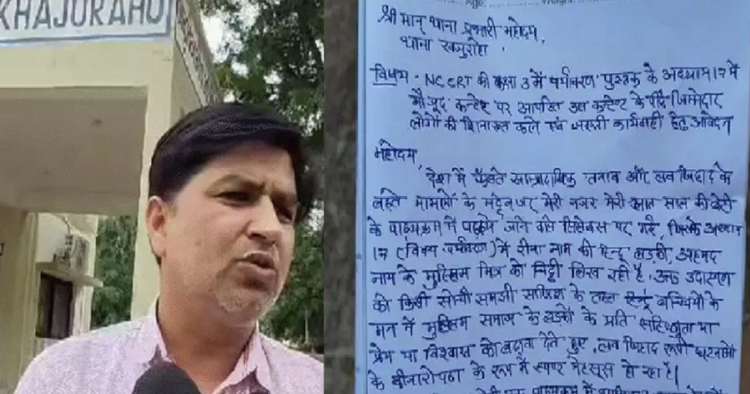 KHAJURAHO
श्री मान् थाना प्रभारी महोदय
थाना खजुराहो
विषय - NCERT की कक्षा 3 में पर्यावरण पुस्तक के अध्याय 17 में
मौजूद कन्टेंट पर आपत्ति उस कन्टेन्ट के लिए जिम्मेदार
लोगों की शिनाख्त करने एवं जरूरी कार्यवाही हेतु आवेदन
महोदय,
देश में फैलते साम्प्रदायिक तनाव और लव जिहाद के
बढते मामलों के मद्देनजर मेरी नजर मेरी आठ साल की बेटी
के पाठ्यक्रम में पढ़ाये जाने वाले सिलेबस पर गई, जिसके अध्याय
17 (विषय पर्यावरण) में रीना नाम की हिन्दू लड़की, अहमद
नाम के मुस्लिम मित्र को चिट्ठी लिख रही है, उक्त उदाहरण
को किसी सोची समझी साजिश के तहत हिन्दू बच्चियों के
मन में मुस्लिम समाज के लड़कों के प्रति सहिष्णुता या
प्रेम या विश्वास को बढ़ावा देते हुए, लव जिहाद रूपी घटनाओं
के बीजारोपण के रूप में स्पष्ट महसूस हो रहा है।